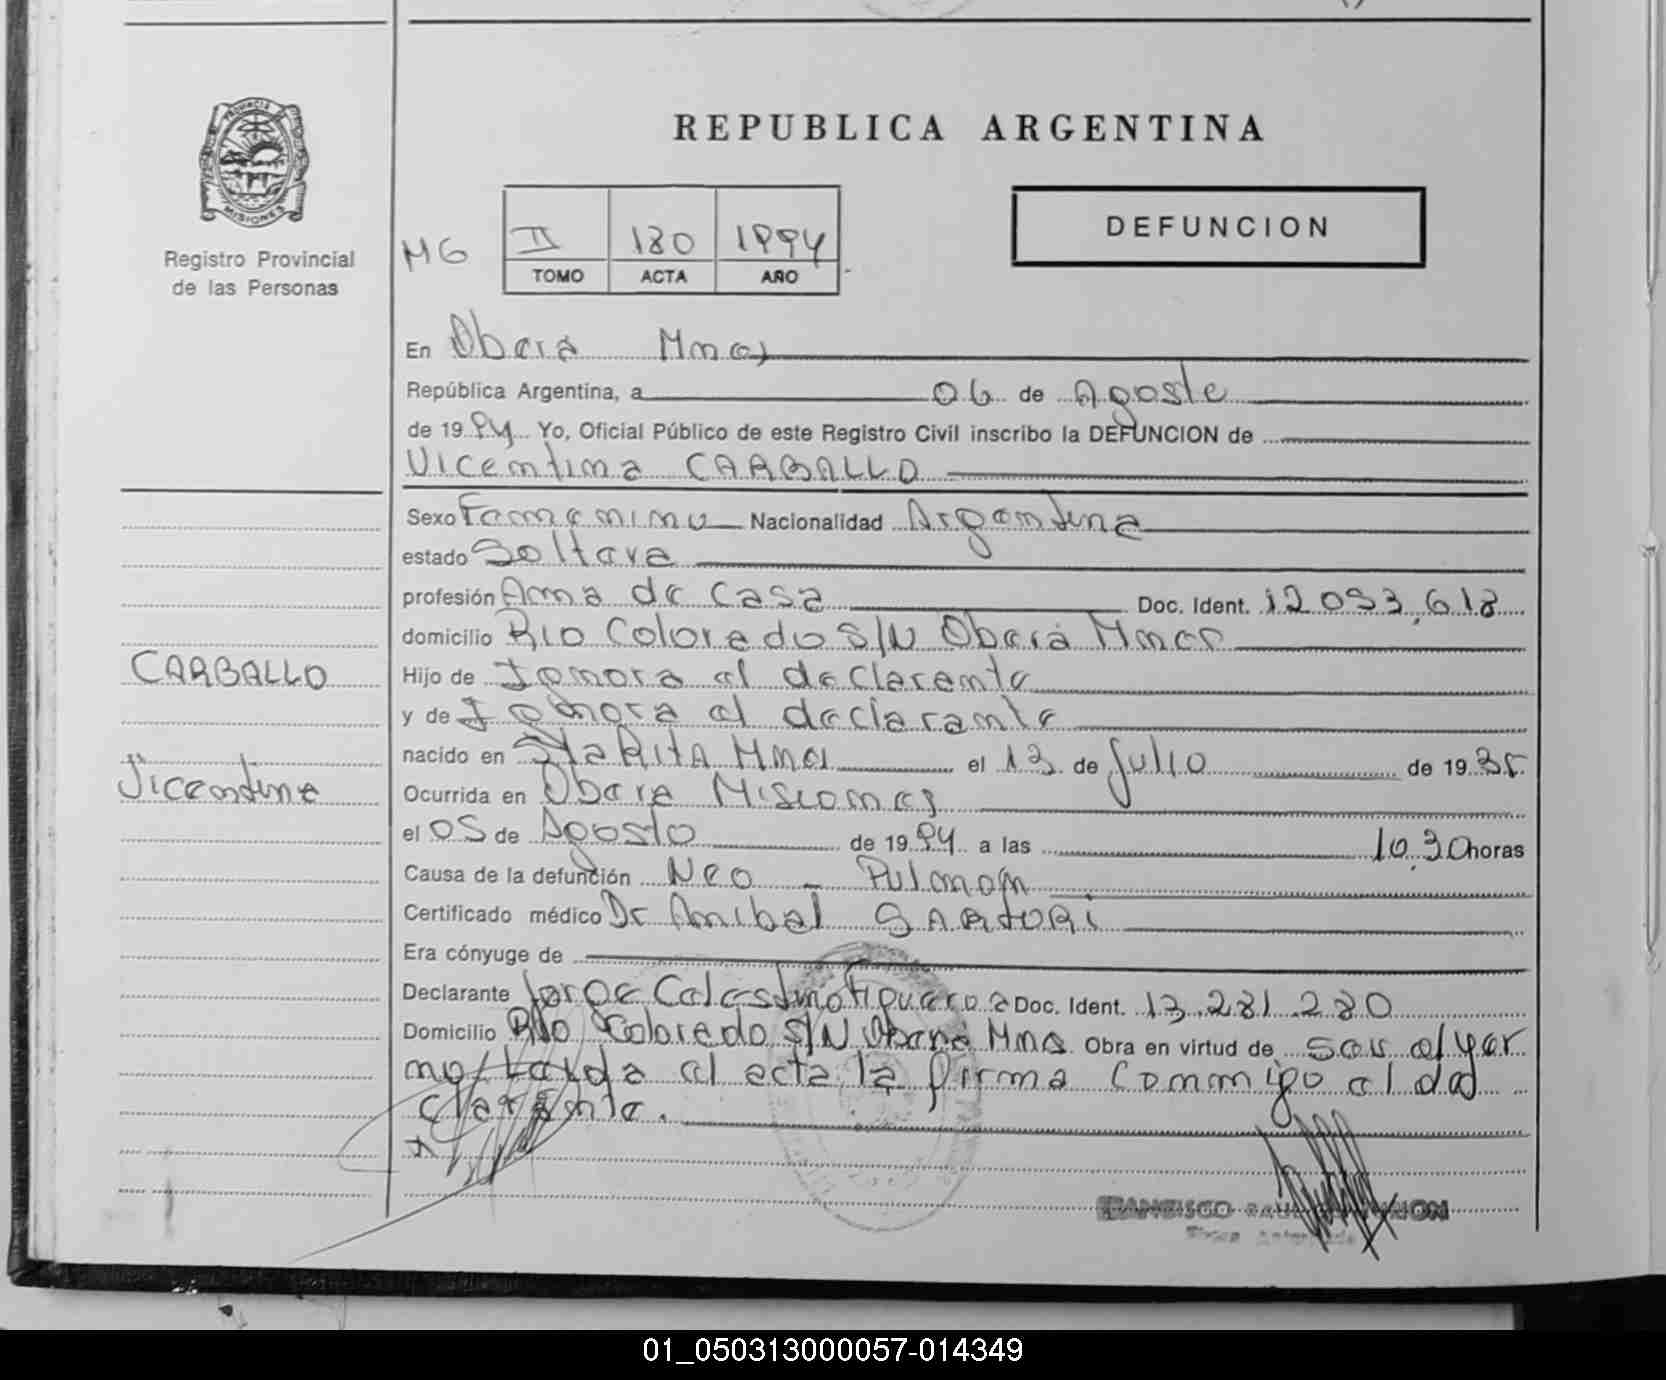 PROVINCIA
MISIONES
Registro Provincial
de las Personas
REPUBLICA ARGENTINA
DEFUNCION
MG II 180 1994
TOMO ACTA AÑO
En Oberá Mnes
República Argentina, a 06 de Agosto
de 1994 Yo, Oficial Público de este Registro Civil inscribo la DEFUNCION de
Vicentina CARBALLO
Sexo Femenino Nacionalidad Argentina
estado Soltera
profesión Ama de Casa Doc. Ident. 12.053.618
domicilio Rio Colorado S/N Oberá Mnes
CARBALLO
Hijo de Ignora el declarante
y de Ignora el declarante
nacido en Sta Rita Mnes el 13 de Julio de 1935
Vicentina
Ocurrida en Obera Misiones
el 05 de Agosto de 1994 a las 10,30 horas
Causa de la defunción Neo - Pulmon
Certificado médico Dr Anibal SARTORI
Era cónyuge de
Declarante Jorge Celestino Figueroa Doc. Ident. 13.281.280
Domicilio Rio Colorado S/N Obera Mnes Obra en virtud de ser el yer
no/ Leida el acta la firma Conmigo el de
clarante.
FRANCISCO RAUL
01_050313000057-014349